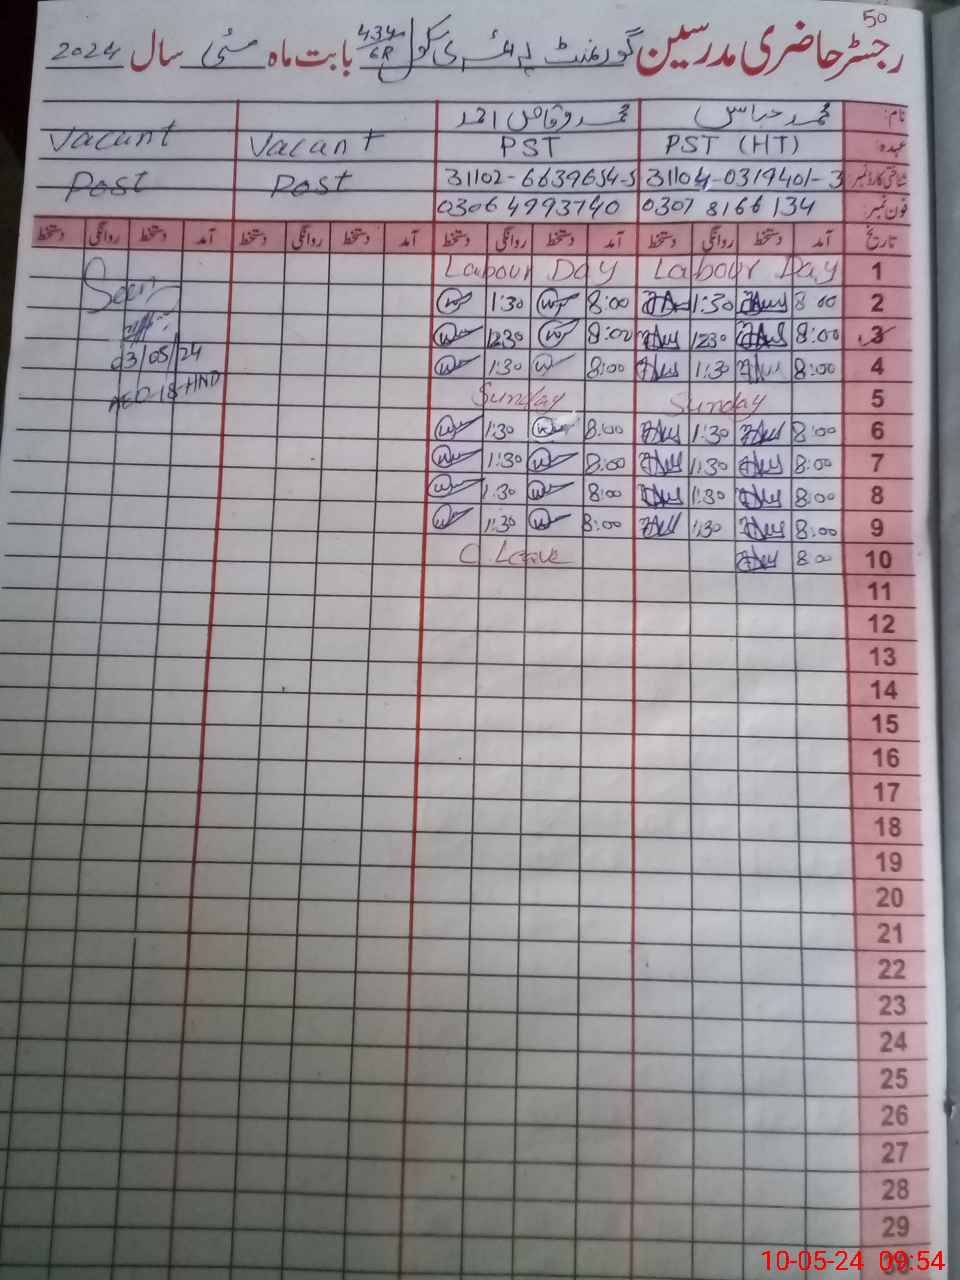 50
رجسٹر حاضری مدرسین گورنمنٹ پرائمری سکول 434/6R بابت ماہ مئی سال 2024
نام: محمد عباس محمد وقاص احمد
عہدہ: PST (HT) PST Vacant Vacant
شناختی کارڈ نمبر: 31104-0319401-3 31102-6639654-5 Post Post
فون نمبر: 0307 8166134 03064993740
تاریخ آمد دستخط روانگی دستخط آمد دستخط روانگی دستخط آمد دستخط روانگی دستخط آمد دستخط روانگی دستخط
1 Labour Day Labour Day
2 8:00 1:30 8:00 1:30 Seen
3 8:00 12:30 8:00 12:30
4 8:00 1:30 8:00 1:30 03/05/24
5 Sunday Sunday AEO-18-HND
6 8:00 1:30 8:00 1:30
7 8:00 1:30 8:00 1:30
8 8:00 1:30 8:00 1:30
9 8:00 1:30 8:00 1:30
10 8:00 C. Leave
11
12
13
14
15
16
17
18
19
20
21
22
23
24
25
26
27
28
29
30
10-05-24 09:54